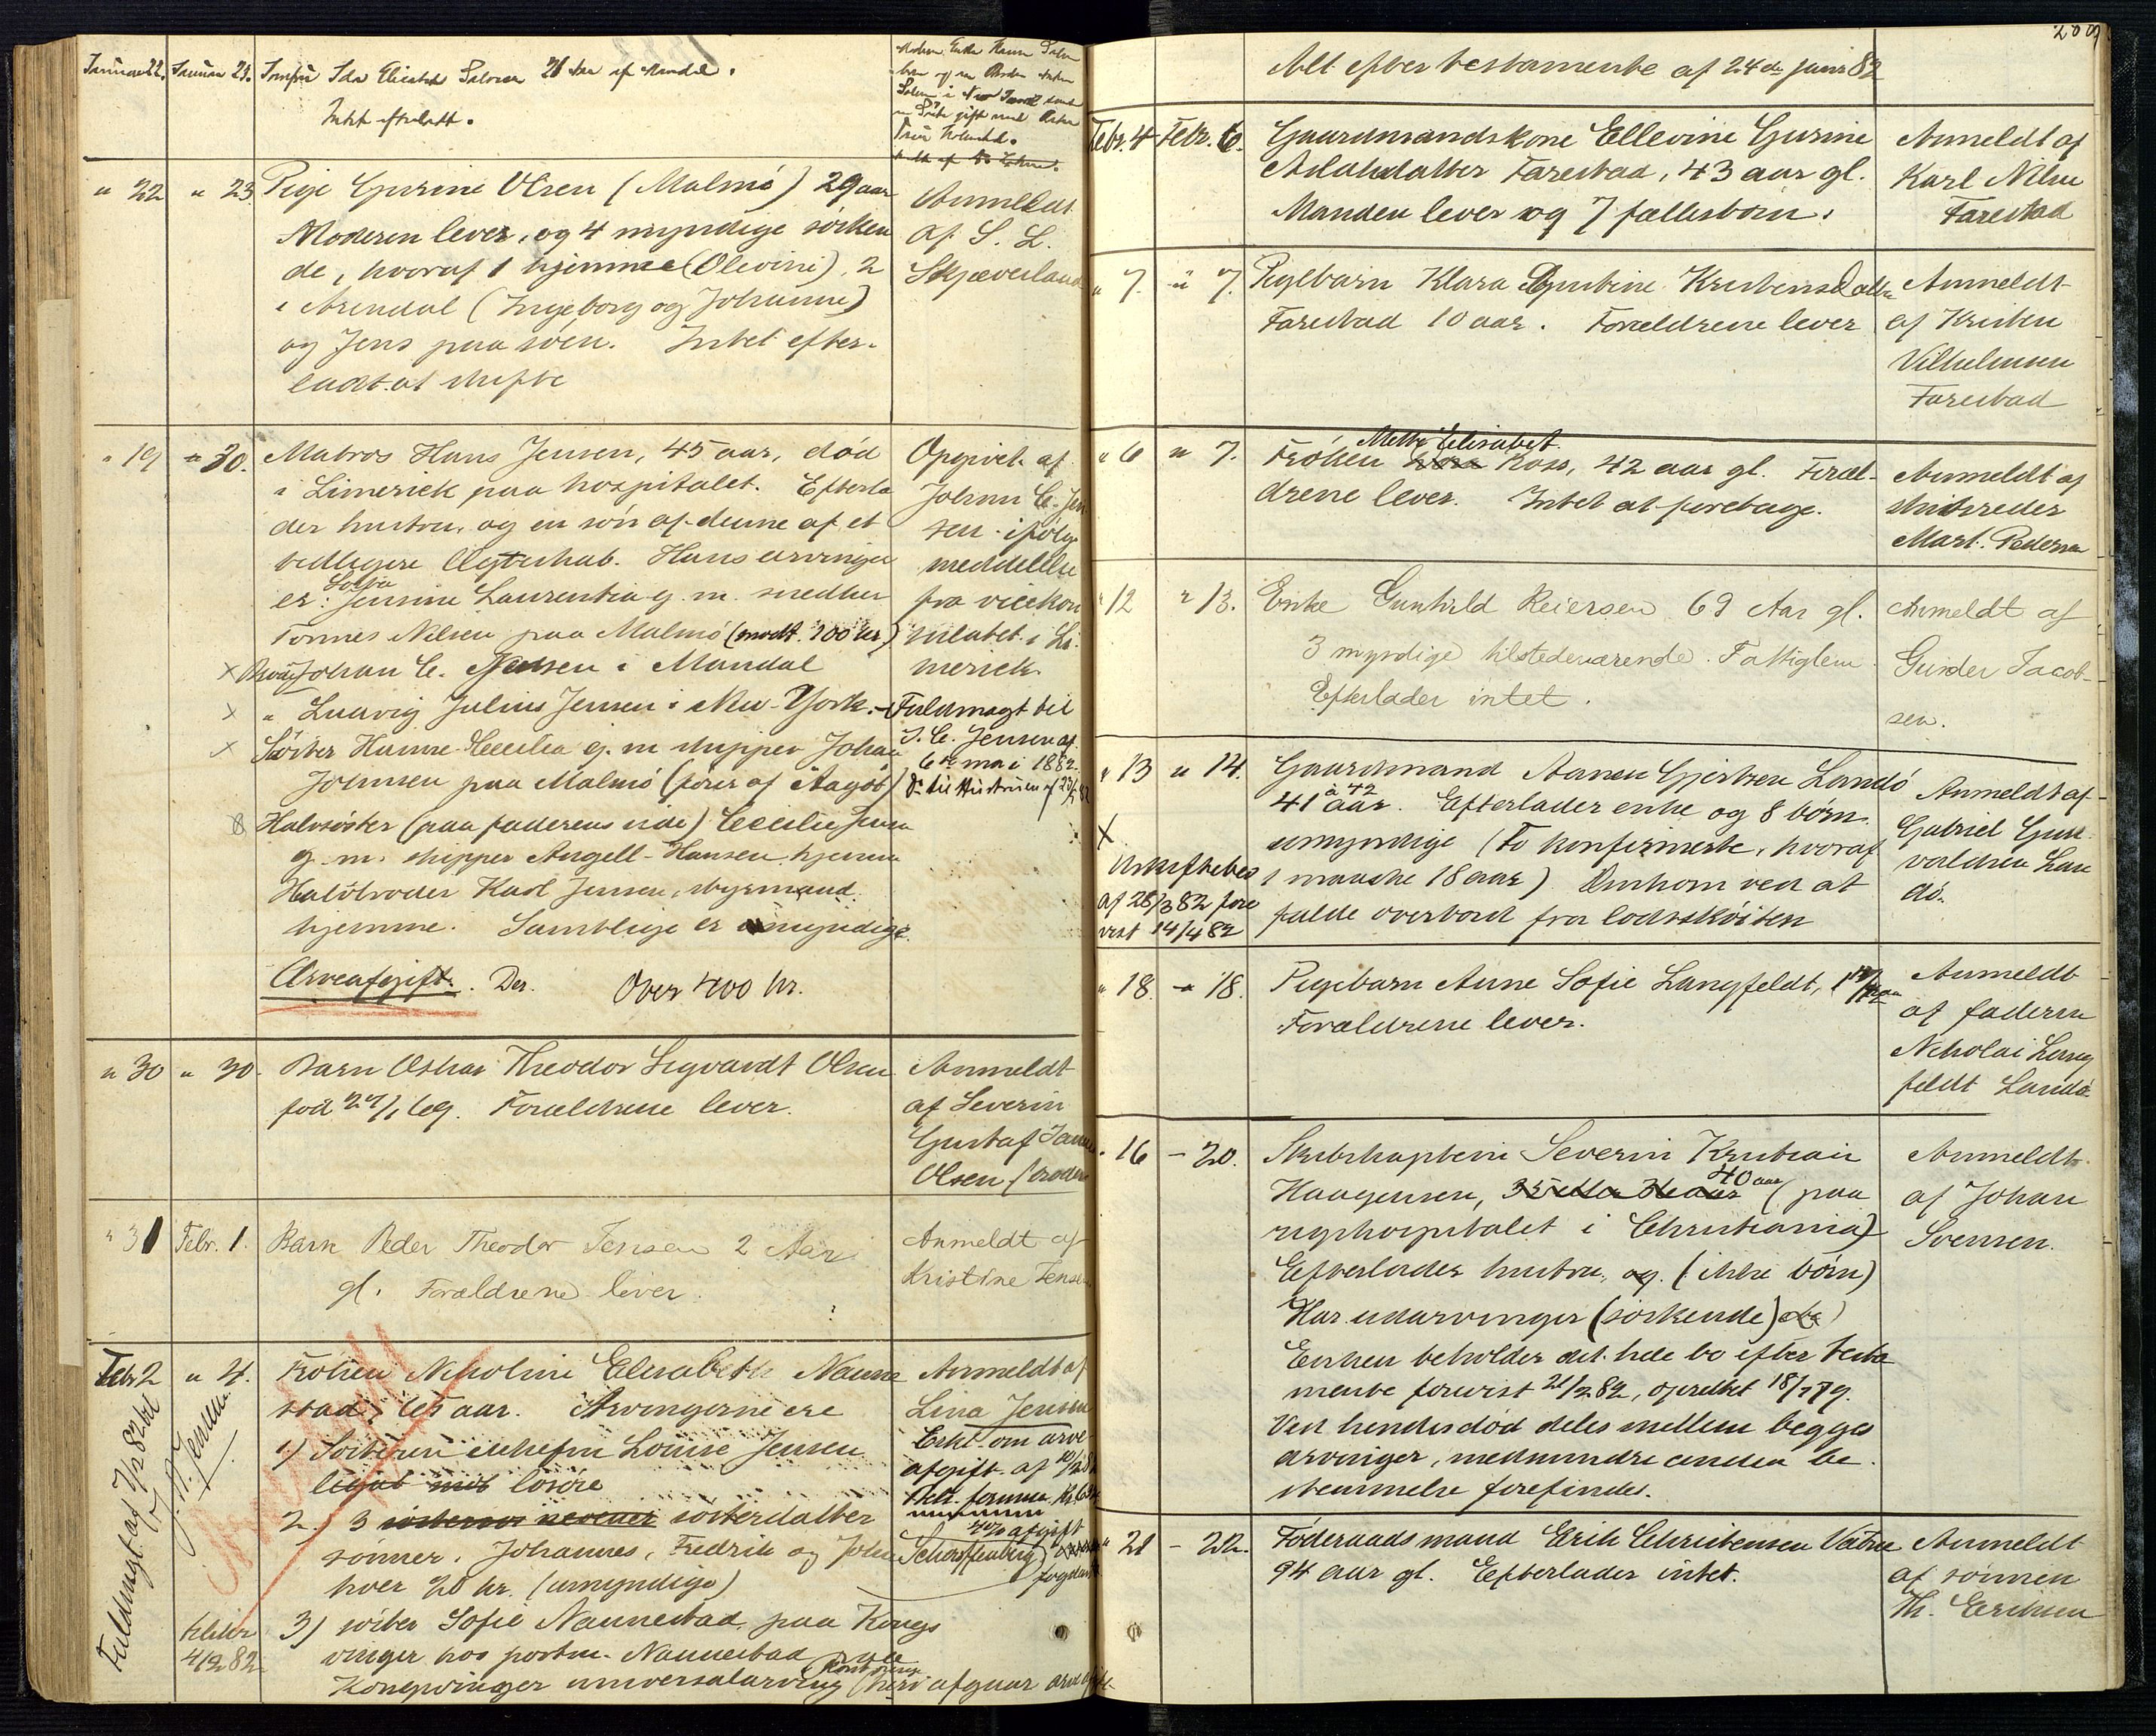 Januar 22. Januar 23. Jomfru Ida Elisabeth Salvesen 21 Aar af Mandal.
Intet efterladt.
" 22 " 23. Pige Gurine Olsen (Malmö) 29 aar
Moderen lever, og 4 myndige sösken
de, hvoraf 1 hjemme (Olevine), 2
i Arendal (Ingeborg og Johanne)
og Jens paa söen. Intet efter-
ladt at skifte
Anmeldt
af S. L.
Skjæveland
" 19 " 30. Matros Hans Jensen, 45 aar, död
i Limerick paa hospitalet. Efterla
der hustru, og en sön af denne af et
tidligere Ægteskab. Hans arvinger
er: Söster Jensine Laurentia g. m. snedker
Tönnes Nilsen paa Malmö (modt. 200 kr)
x Broder Johan C. Jensen i Mandal
x " Ludvig Julius Jensen i New-York.
x Söster Hanne Cecilia g. m skipper Johan
Johnsen paa Malmö (förer af "Aagot")
Halvsöster (paa faderens side) Cecilie Jensen
g. m. skipper Angell-Hansen hjemme
Halvbroder Karl Jensen, styrmand
hjemme. Samtlige er myndige.
Arveafgift. Der. Over 400 kr.
Opgivet af
Johan C. Jen
sen ifölge
meddelelse
fra vicekon
sulatet i Li-
merick.
Fuldmagt til
J. C. Jensen af
6te mai 1882.
" 30 " 30. Barn Oskar Theodor Sigvardt Olsen
föd 27/1 69. Forældrene lever.
Anmeldt
af Severin
Gustaf
Olsen / broder
" 31 Febr. 1. Barn Peder Theodor Jensen 2 Aar
gl. Forældrene lever.
Anmeldt af
Kristine Jensen
Febr 2 " 4. Fröken Nikoline Elisabeth Nanne
stad, 65 aar. Arvingerne ere
1) Sösteren enkefru Louise Jensen
legat mit lösöre
2.) 3 nevöuer sösterdatter
sönner, Johannes, Fredrik og John
hver 20 kr. (umyndige)
3) söster Sofie Nannestad paa Kongs
vinger hos postm. Nannestad
Kongsvinger universalarving heri afgaar arveafgift
Anmeldt af
Lina Jensen
Erkl. om arve
afgift af 10/2 82
4% afgift
Scharffenberg
Fuldmagt af 7/2 82 til
J. A. Jensen
4/2 82
209
Alt efter testamente af 24de juni 82
Febr. 4 Febr. 6. Gaardmandskone Ellevine Gurine
Aslaksdatter Farestad, 43 aar gl.
Manden lever og 7 fællesbörn.
Anmeldt af
Karl Nilsen
Farestad
" 7. " 7. Pigebarn Klara Gustine Kristensdatter
Farestad 10 aar. Forældrene lever
Anmeldt
af Kristen
Vilhelmsen
Farestad
" 6 " 7. Fröken Mette Elisabet Koss, 42 aar gl. Foræl-
drene lever. Intet at foretage.
Anmeldt af
Skibsreder
Mart. Pedersen
" 12 " 13. Enke Gunhild Reiersen 69 Aar gl.
3 myndige tilstedeværende. Fattiglem
Efterlader intet.
Anmeldt af
Gunder Jacob-
sen.
" 13 " 14. Gaardmand Aanen Gjertsen Landö
41 à 42 aar. Efterlader enke og 8 börn
umyndige (to konfirmerte, hvoraf
1 manske 18 aar) Omkom ved at
falde overbord fra lodssköiten
x
Uskiftebev
af 28/3 82 fore
vist 14/4 82
Anmeldt af
Gabriel Gun
valdsen Lan
dö.
" 18. " 18. Pigebarn Anne Sofie Langfeldt,
Forældrene lever.
Anmeldt
af faderen
Nikolai Lang
feldt Landö
" 16 - 20. Skibskaptein Severin Kristian
Haagensen, 40 aar (paa
rigshospitalet i Christiania)
Efterlader hustru, og (ikke börn)
Har udarvinger (söskende)
Enken beholder det hele bo efter testa
mente forevist 21/2 82, oprettet 18/7 79.
Ved hendes död deles mellem begges
arvinger, medmindre anden be-
stemmelse forefindes.
Anmeldt
af Johan
Svensen.
" 21 - 22. Föderaadsmand Erik Christensen Vatne
94 aar gl. Efterlader intet.
Anmeldt
af sönnen
Th. Eriksen